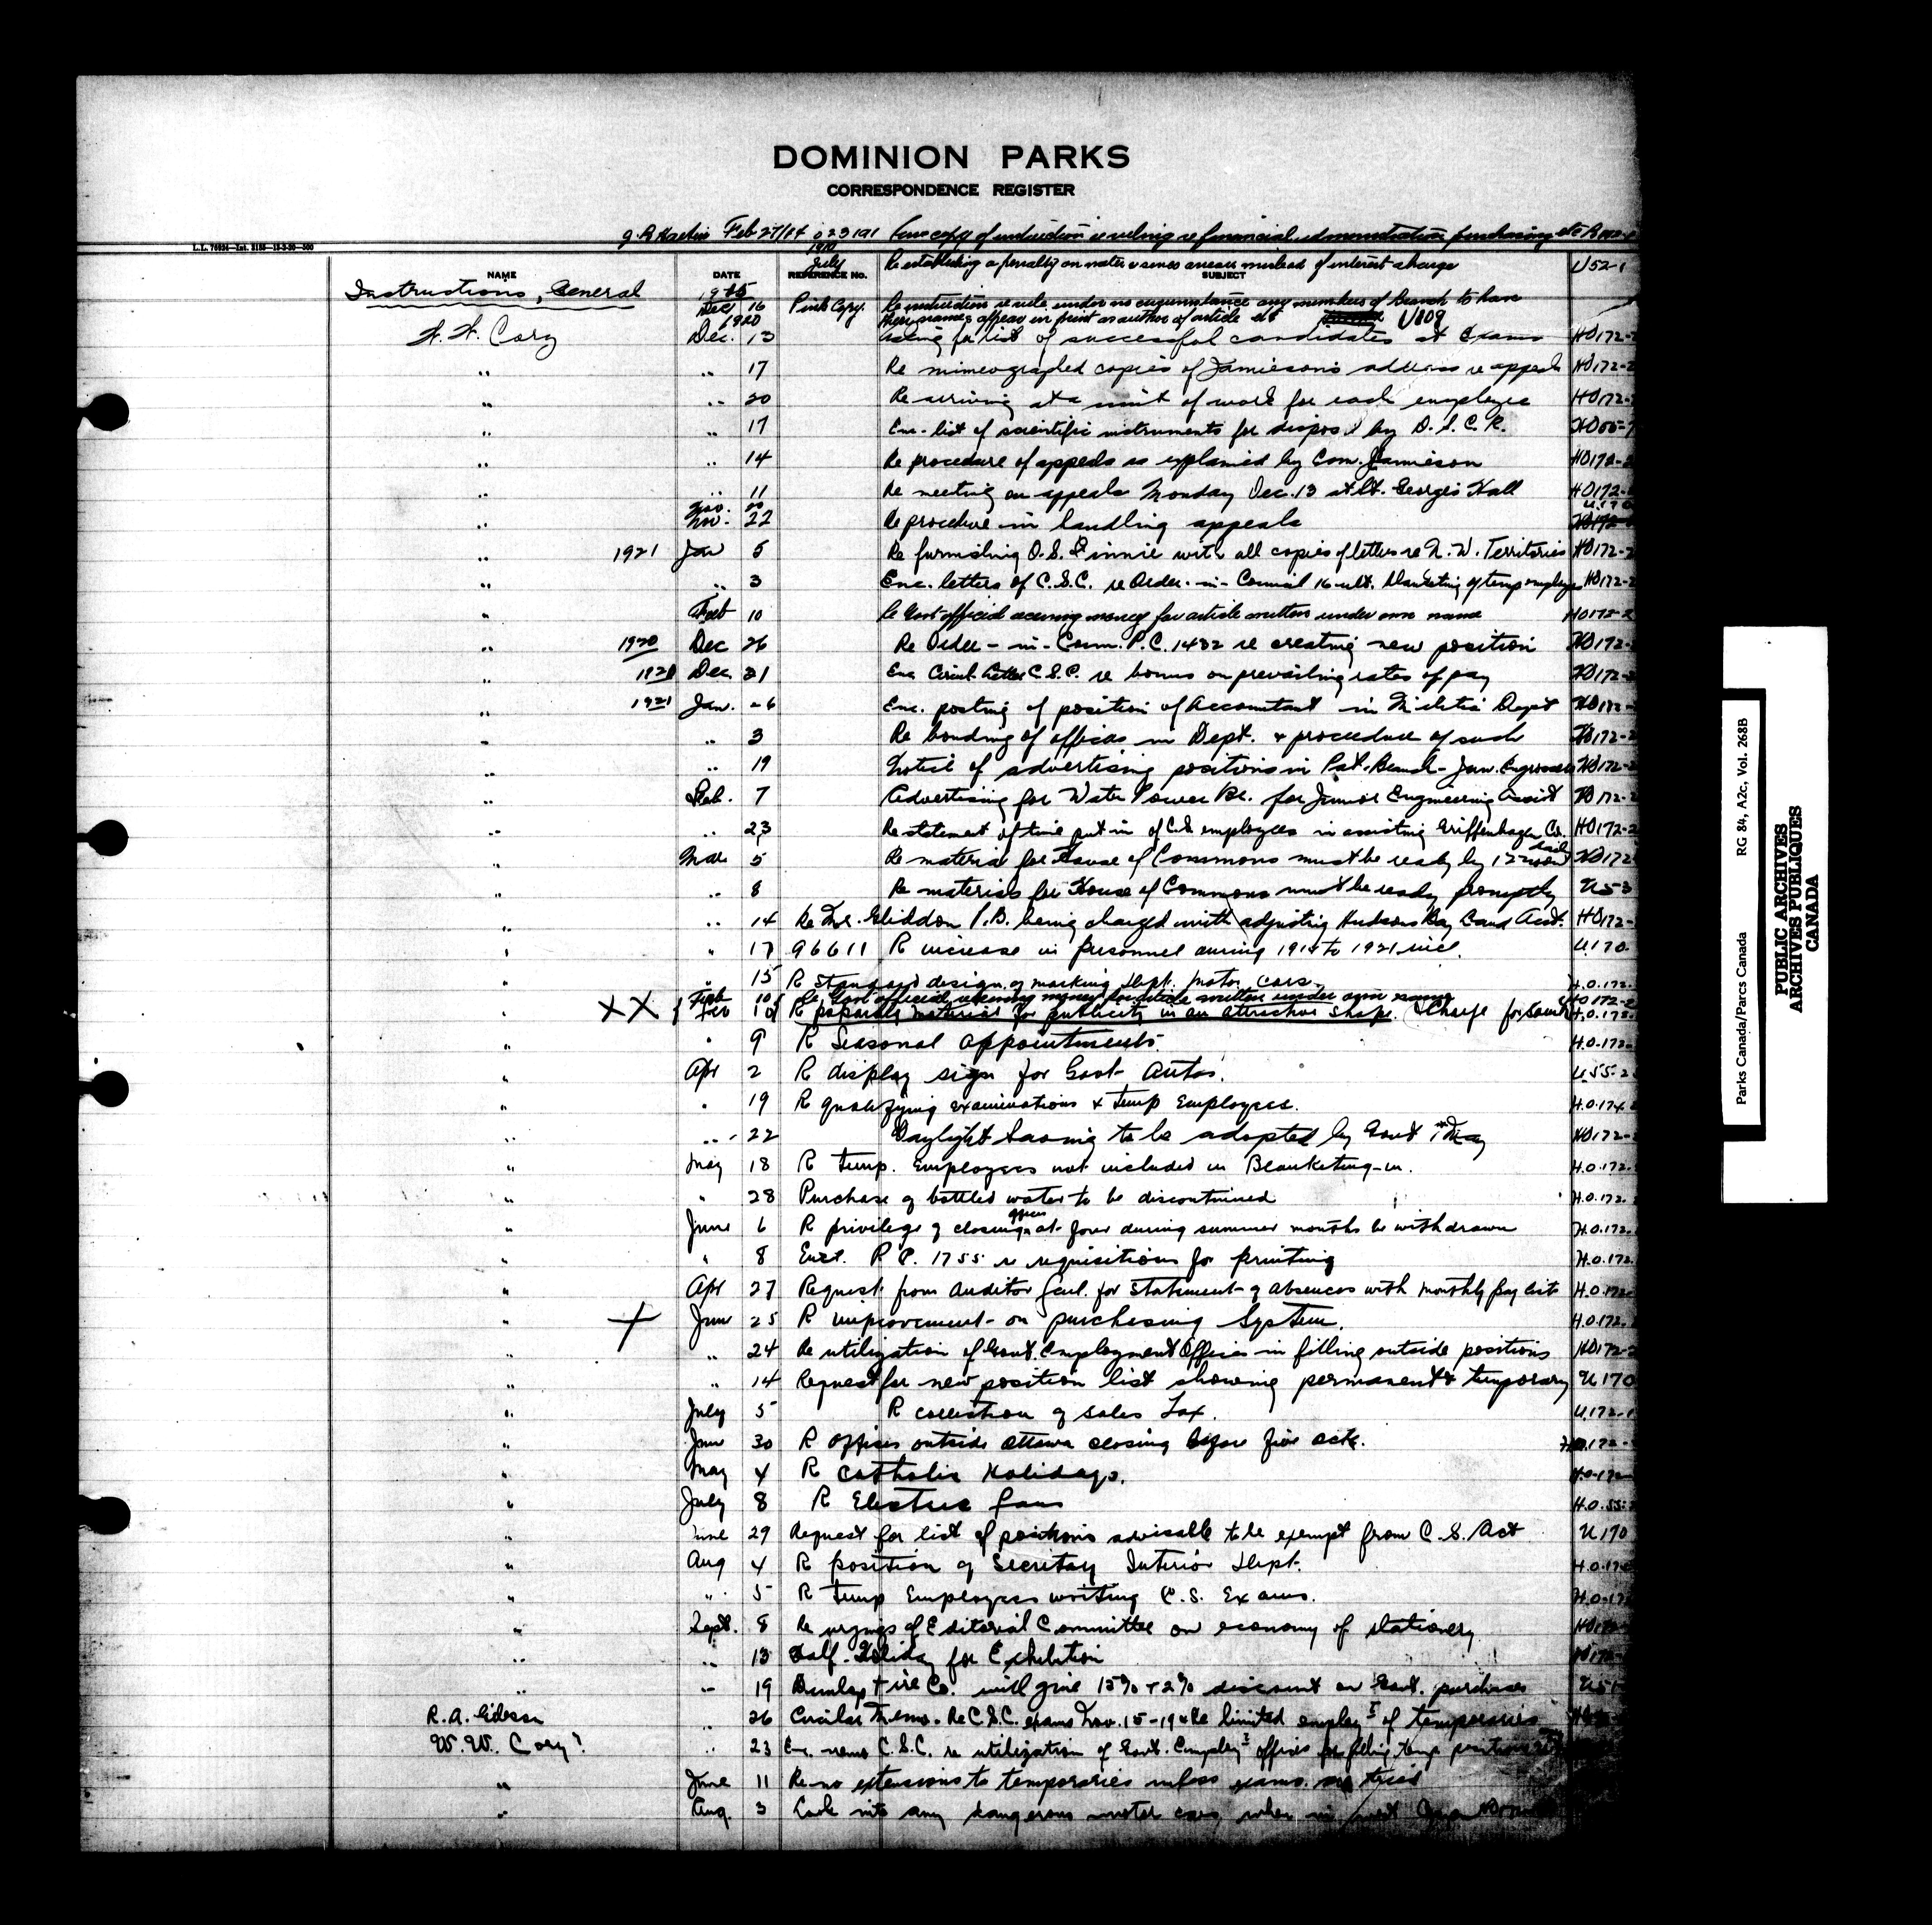 DOMINION PARKS
CORRESPONDENCE REGISTER
Feb 27/14 023191 copy of instruction re financial administration purchasing etc
L.L. 76924—Int. 8155—18-3-20—500
1920
July Re establishing a penalty on water & sewer arrears instead of interest charge U52-1
NAME DATE REFERENCE No. SUBJECT
Instructions, General 1915
Dec 16 Pink Copy. Re instructions re rule under no circumstance any members of Branch to have
their names appear in print as author of article etc U109
1920
W. W. Cory Dec. 13 Asking for list of successful candidates at Exams HO172-2
" " 17 Re mimeographed copies of Jamieson's address re appeals HO172-2
" " 20 Re arriving at a unit of work for each employee HO172-
" " 17 Enc. list of scientific instruments for disposal by D.S.C.R.
" " 14 Re procedure of appeals as explained by Com. Jamieson HO172-2
" " 11 Re meeting on appeals Monday Dec. 13 at St. George's Hall HO172-
" Nov. 22 Re procedure in handling appeals U.170
" 1921 Jan 5 Re furnishing O.S. Finnie with all copies of letters re N.W. Territories HO172-2
" " 3 Enc. letters of C.S.C. re Order-in-Council 16 ult. blanketing of temp employees HO172-2
" Feb 10 Re Govt official receiving money for article written under own name HO172-2
" 1920 Dec 26 Re Order-in-Coun. P.C. 1432 re creating new position HO172-
" 1920 Dec 21 Enc Circul. Letter C.S.C. re bonus on prevailing rates of pay HO172-2
" 1921 Jan. 26 Enc. posting of position of Accountant in Militia Dept HO172-
" " 3 Re bonding of officers in Dept. & procedure of such HO172-2
" " 19 Notice of advertising positions in Pat. Branch - Jun. Engrossers HO172-2
" Feb. 7 Advertising for Water Power Br. for Junior Engineering Assist HO172-2
" " 23 Re statement of time put in of C.S. employees in assisting Griffenhagen Co. HO172-2
" Mar 5 Re material for House of Commons must be ready by 12 noon daily HO172-
" " 8 Re material for House of Commons must be ready promptly U53
" " 14 Re Mr. Gliddon P.B. being charged with adjusting Hudsons Bay Land Acct. HO172-
" " 17 96611 R increase in personnel during 1914 to 1921 incl. U.170.
" " 15 R Standard design of marking Dept. motor cars. H.O.172.
XX Feb 10 Re Govt official receiving money for article written under own name HO172-2
" Feb 10 R preparing material for publicity in an attractive shape. H.O.172.
" " 9 R Seasonal Appointments. H.O.172.
" Apr 2 R display sign for Govt Autos. U.55-2
" " 19 R qualifying examinations & temp Employees. H.O.174.
" " 22 Daylight Saving to be adopted by Govt 1st May HO172-
" May 18 R temp. Employees not included in Blanketing-in. H.O.172.
" " 28 Purchase of bottled water to be discontinued H.O.172.
" June 6 R privilege of closing offices at four during summer months be withdrawn H.O.172.
" " 8 Encl. P.C. 1755 re requisitions for printing H.O.172.
" Apr 27 Request from Auditor Genl. for Statement of absences with monthly pay lists H.O.172
" X June 25 R improvement on purchasing System. H.O.172.
" " 24 Re utilization of Govt. Employment Offices in filling outside positions HO172-2
" " 14 Request for new position list showing permanent & temporary U170
" July 5 R collection of Sales Tax. U.172-1
" June 30 R offices outside Ottawa closing before five oclk. H.O.172-
" May 4 R Catholic Holidays. H.O.172
" July 8 R Electric fans H.O.55-
" June 29 Request for list of positions advisable to be exempt from C.S. Act U170
" Aug 4 R position of Secretary Interior Dept. H.O.17
" " 5 R Temp Employees writing C.S. Exams. H.O.17
" Sept. 8 Re urgings of Editorial Committee on economy of stationery
" " 13 Half-Holiday for Exhibition
" " 19 Dunlop Tire Co. will give 15% + 2% discount on Govt. purchases U51
R.A. Gibson " 26 Circular Memo. Re C.S.C. exams Nov. 15-19 & Re limited employt of temporaries
W.W. Cory? " 23 Enc. memo C.S.C. re utilization of Govt. Employt offices for filling temp positions
" June 11 Re no extensions to temporaries unless exams. are tried
" Aug. 3 Look into any dangerous motor cars, when in
PUBLIC ARCHIVES
ARCHIVES PUBLIQUES
CANADA
Parks Canada/Parcs Canada RG 84, A2c, Vol. 268B